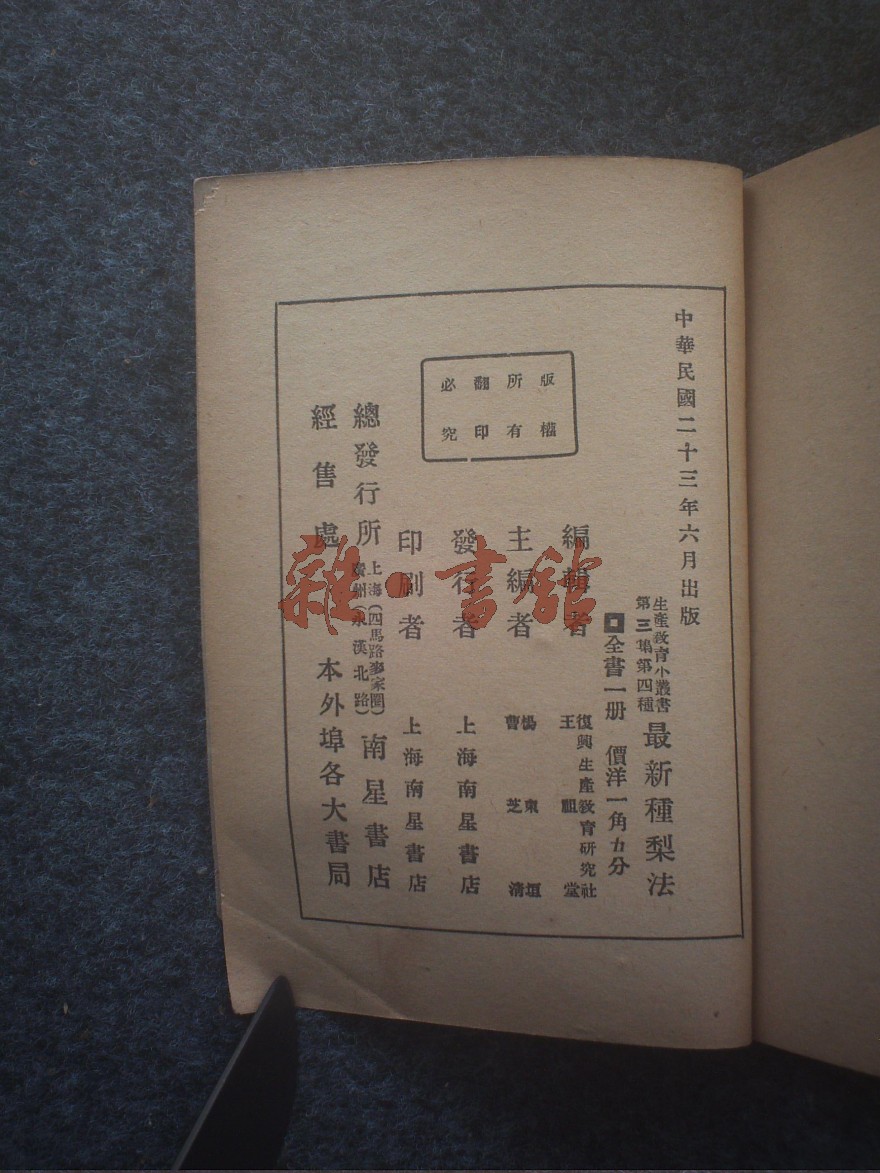 中華民國二十三年六月出版
生產教育小叢書
第三集第四種
最新種梨法
全書一册 價洋一角五分
版權
所有
翻印
必究
編輯者 復興生產教育研究社
王祖堂
主編者 楊東垣
曹芝清
發行者 上海南星書店
印刷者 上海南星書店
總發行所 上海(四馬路麥家圈)
廣州(永漢北路)
南星書店
經售處 本外埠各大書局
雜·書館